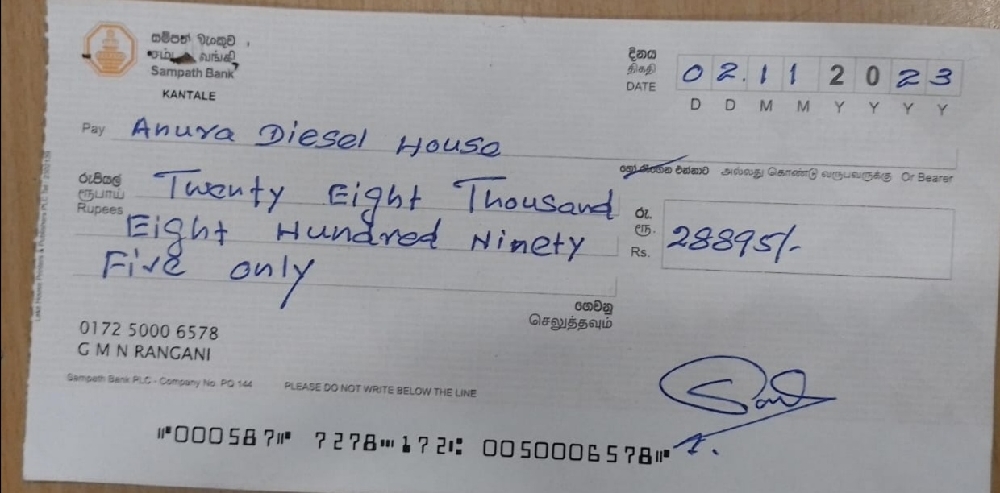 සම්පත් බැංකුව
වංගකි
Sampath Bank
KANTALE
දිනය
திகதி
DATE
02.11 2023
D D M M Y Y Y Y
Pay Anura Diesel House
එන්නාට அல்லது கொண்டு வருபவருக்கு Or Bearer
රුපියල්
ரூபாய்
Rupees
Twenty Eight Thousand
Eight Hundred Ninety
Five only
රු.
ரூ.
Rs. 28895/-
ගෙවනු
செலுத்தவும்
0172 5000 6578
G M N RANGANI
Sampath Bank PLC - Company No. PQ 144 PLEASE DO NOT WRITE BELOW THE LINE
⑈000587⑈ 7278⑉172⑆ 0050006578⑈